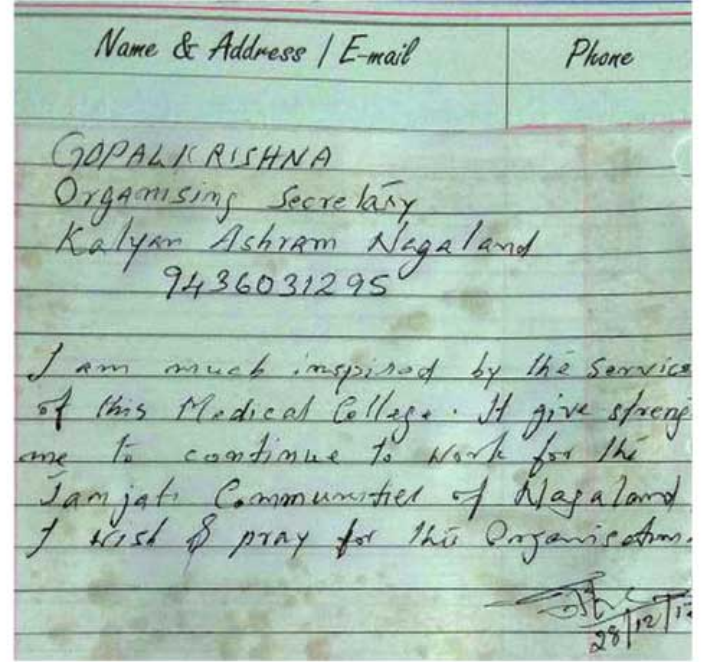 Name & Address / E-mail Phone
GOPALKRISHNA
Organising Secretary
Kalyan Ashram Nagaland
9436031295
I am much inspired by the service
of this Medical College. It give streng
me to continue to work for the
Janjati Communities of Nagaland
I wish & pray for this Organisation.
28/12/1